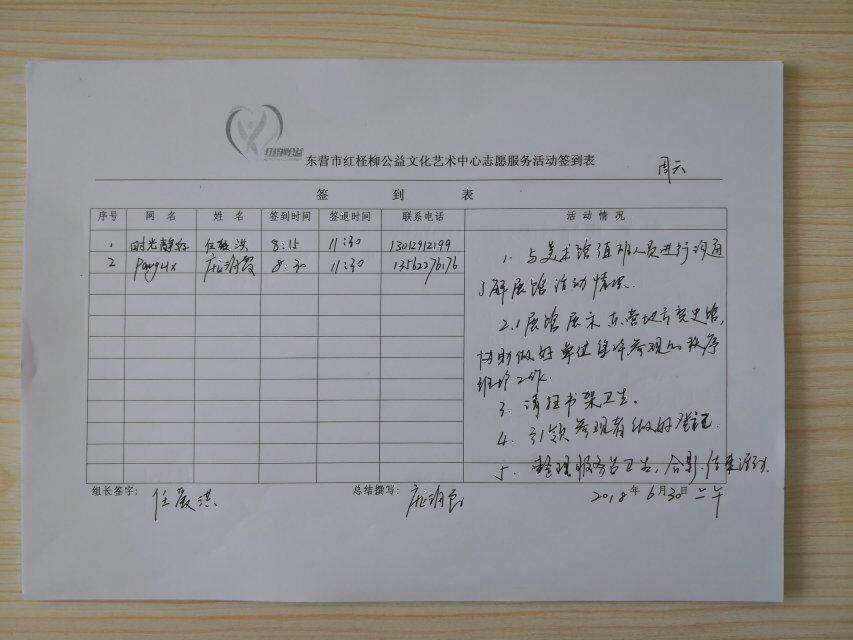 红柽柳公益
东营市红柽柳公益文化艺术中心志愿服务活动签到表
周六
签 到 表
序号 网 名 姓 名 签到时间 签退时间 联系电话 活 动 情 况
1 时光静好 任 洪 8:15 11:30 13012912199
2 8:30 11:30 13562276176
1. 与美术馆值班人员进行沟通
了解展馆活动情况.
2.1展馆展示东营地方党史馆,
协助做好单位集体参观的秩序
维护工作.
3. 清扫书架卫生.
4. 引领参观者做好登记.
5. 整理服务台卫生,合影,结束活动.
组长签字: 任 洪 总结撰写:
2018年6月30日 上午